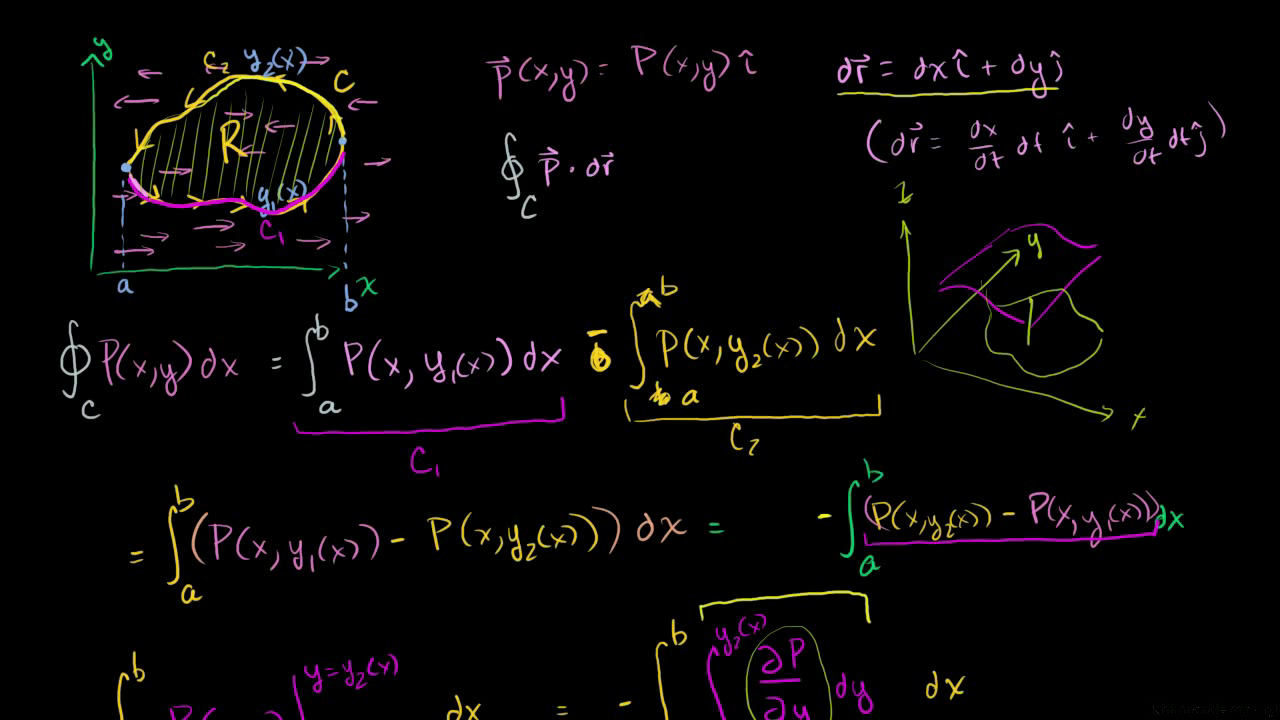 y
C₂ y₂(x) C
R
y₁(x)
C₁
a b x
P⃗(x,y) = P(x,y) î
∮_C P⃗ · dr⃗
dr⃗ = dx î + dy ĵ
(dr⃗ = dx/dt dt î + dy/dt dt ĵ)
z
y
x
∮_C P(x,y) dx = ∫_a^b P(x, y₁(x)) dx - ∫_a^b P(x, y₂(x)) dx
C₁ C₂
= ∫_a^b (P(x, y₁(x)) - P(x, y₂(x))) dx = - ∫_a^b (P(x, y₂(x)) - P(x, y₁(x))) dx
b y = y₂(x) dx = - ∫^b ∫^{y₂(x)} ∂P/∂y dy dx